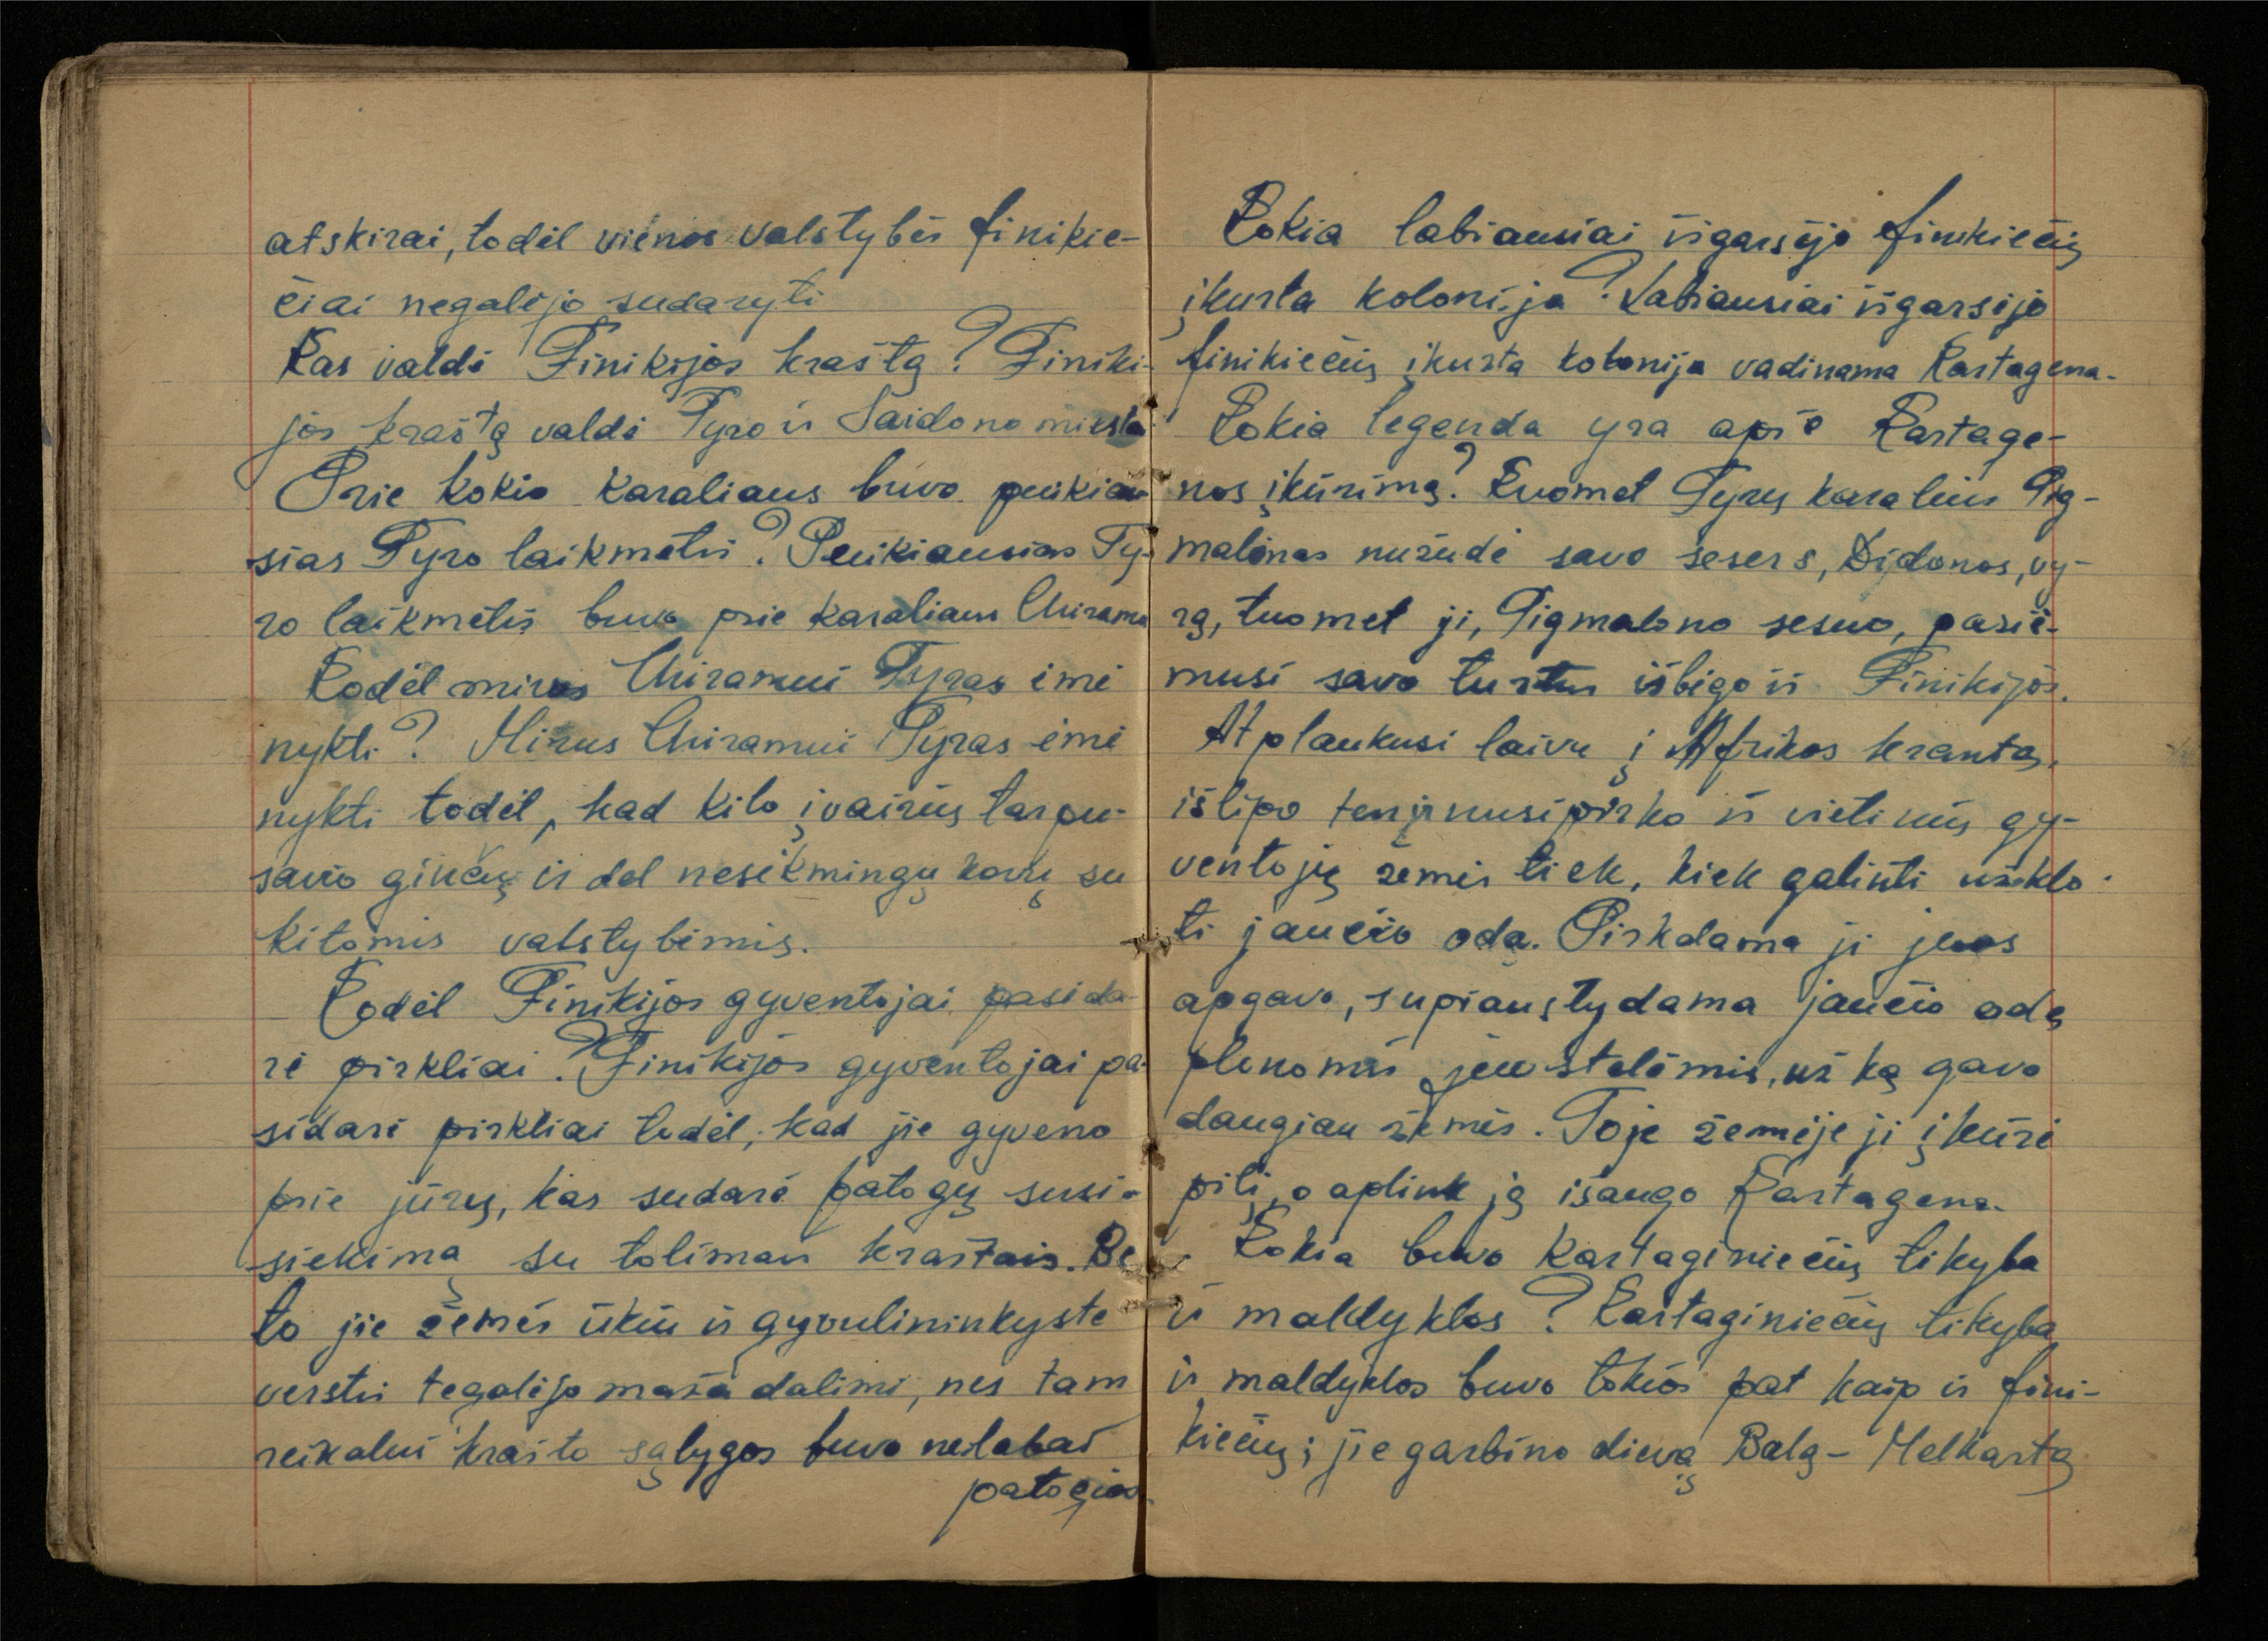 atskirai, todėl vienos valstybės finikie-
čiai negalėjo sudaryti
Kas valdė Finikijos kraštą? Finiki-
jos kraštą valdė Tyro ir Saidono miestai
Prie kokio karaliaus buvo puikiau-
sias Tyro laikmetis? Puikiausias Ty-
ro laikmetis buvo prie karaliaus Chiramo
Kodėl mirus Chiramui Tyras ėmė
nykti? Mirus Chiramui Tyras ėmė
nykti todėl, kad kilo įvairių tarpu-
savio ginčų ir dėl nesėkmingų kovų su
kitomis valstybėmis.
Kodėl Finikijos gyventojai pasida-
rė pirkliai? Finikijos gyventojai pa-
sidarė pirkliai todėl, kad jie gyveno
prie jūrų, kas sudarė patogų susi-
siekimą su tolimais kraštais. Be
to jie žemės ūkiu ir gyvulininkyste
verstis tegalėjo maža dalimi, nes tam
reikalui krašto sąlygos buvo nelabai
patogios.
Kokia labiausiai išgarsėjo finikiečių
įkurta kolonija? Labiausiai išgarsėjo
finikiečių įkurta kolonija vadinama Kartagena.
Kokia legenda yra apie Kartage-
nos įkūrimą? Kuomet Tyrų karalius Pig-
malonas nužudė savo sesers, Didonos, vy-
rą, tuomet ji, Pigmalono sesuo, pasiė-
musi savo turtus išbėgo iš Finikijos.
Atplaukusi laivu į Afrikos krantą,
išlipo ten ir nusipirko iš vietinių gy-
ventojų žemės tiek, kiek galinti užklo-
ti jaučio oda. Pirkdama ji juos
apgavo, supiaustydama jaučio odą
plonomis juostelėmis, už ką gavo
daugiau žemės. Toje žemėje ji įkūrė
pilį, o aplink ją išaugo Kartagena.
Kokia buvo Kartaginiečių tikyba
ir maldyklos? Kartaginiečių tikyba
ir maldyklos buvo tokios pat kaip ir fini-
kiečių; jie garbino dievą Balą - Melkartą